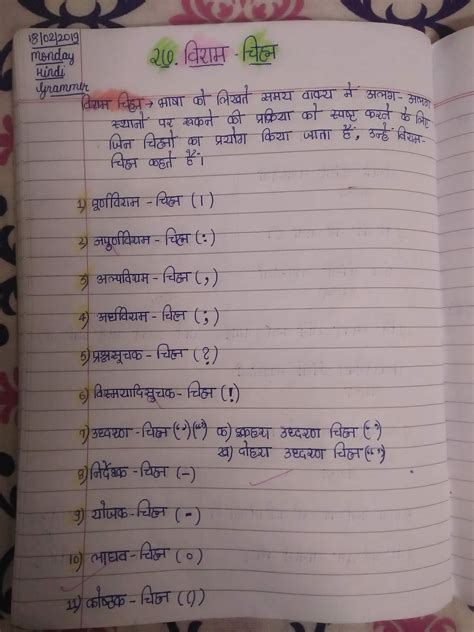 18/02/2019
Monday
Hindi
Grammer
२०. विराम - चिह्न
विराम चिह्न → भाषा को लिखते समय वाक्य में अलग - अलग
स्थानों पर रुकने की प्रक्रिया को स्पष्ट करने के लिए
जिन चिह्नों का प्रयोग किया जाता है, उन्हें विराम-
चिह्न कहते हैं।
1) पूर्णविराम - चिह्न (।)
2) अपूर्णविराम - चिह्न (:)
3) अल्पविराम - चिह्न (,)
4) अर्धविराम - चिह्न (;)
5) प्रश्नसूचक - चिह्न (?)
6) विस्मयादिसूचक - चिह्न (!)
7) उध्दरण - चिह्न (‘ ’) (“ ”) क) इकहरा उध्दरण चिह्न (‘ ’)
ख) दोहरा उध्दरण चिह्न (“ ”)
8) निर्देशक - चिह्न (–)
9) योजक - चिह्न (-)
10) लाघव - चिह्न (०)
11) कोष्ठक - चिह्न (())